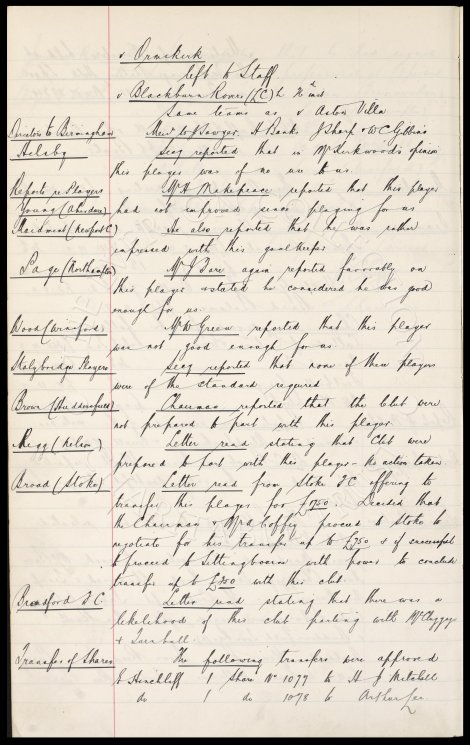 v Ormskirk
left to Staff
v Blackburn Rovers (LC) h
Same teams as v Aston Villa
Directors to Birmingham Messrs J Sawyer, A Banks J Sharp & W C Gibbins
Helsby Secy reported that in Mr Kirkwood's opinion
this player was of no use to us.
Reports re Players Mr H Makepeace reported that this player
Young (Aberdare) had not improved since playing for us
Maidment (Newport C) He also reported that he was rather
impressed with this goalkeeper
Page (Northampton) Mr J Fare again reported favorably on
this player & stated he considered he was good
enough for us.
Wood (Winsford) Mr W Green reported that this player
was not good enough for us
Stalybridge Players Secy reported that none of these players
were of the standard required
Brown (Huddersfield) Chairman reported that the Club were
not prepared to part with this player
Rigg (Nelson) Letter read stating that Club were
prepared to part with this player - No action taken
Broad (Stoke) Letter read from Stoke FC offering to
transfer this player for £1750. Decided that
the Chairman & Mr A Coffey proceed to Stoke to
negotiate for his transfer up to £750 & if successful
to proceed to Sittingbourne with power to conclude
transfer up to £250 with this club.
F.C. Letter read stating that there was a
likelihood of this club parting with
& Turnball
Transfer of Shares The following transfers were approved
Hinchliff 1 Share No 1077 to H J Mitchell
do 1 do 1078 to Arthur Lee